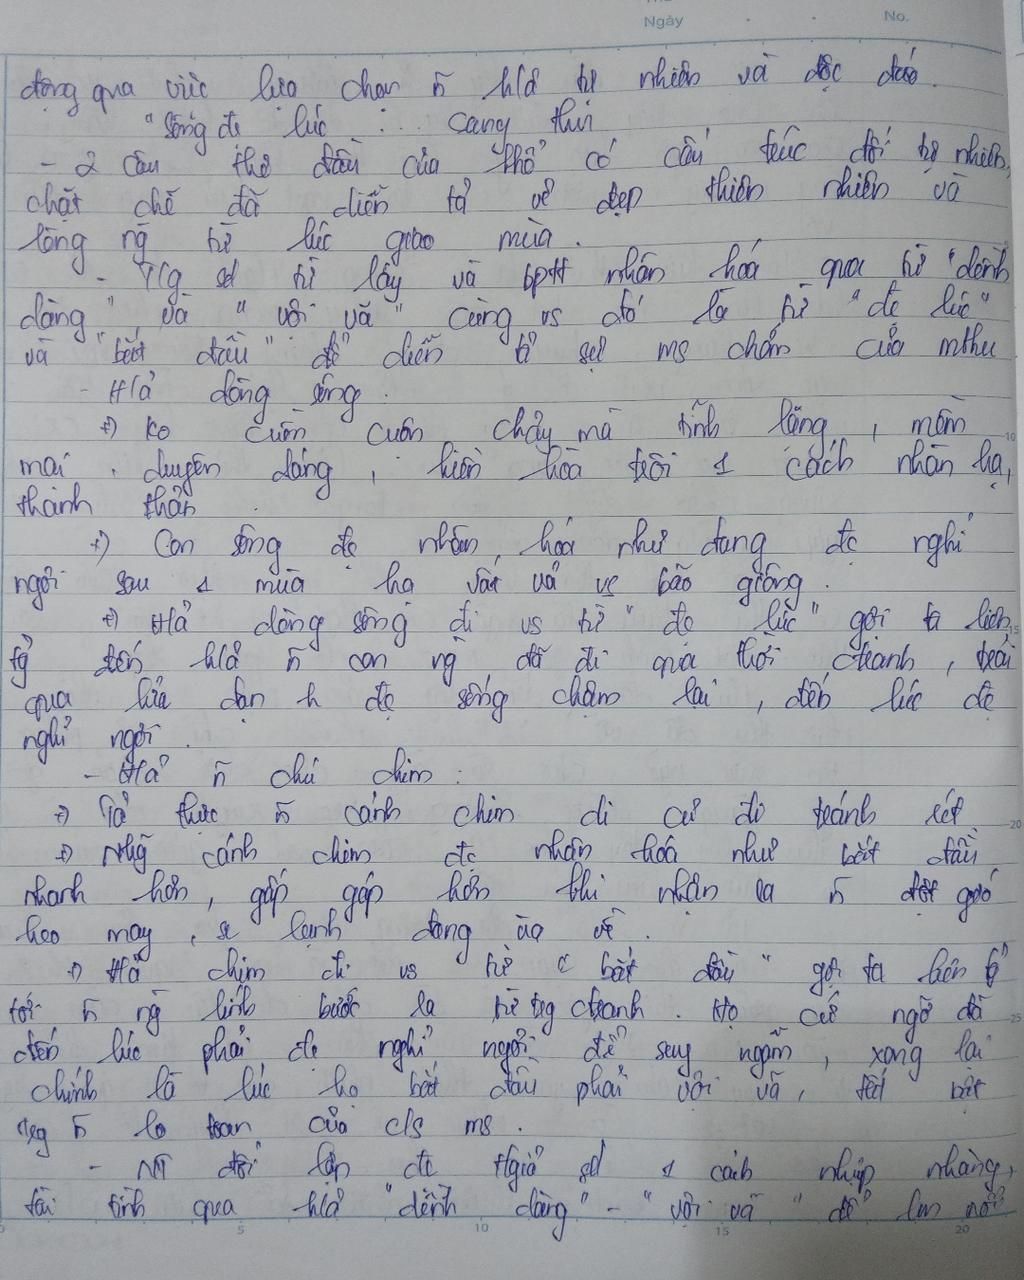 Ngày No.
động qua việc lựa chọn ~ h/ả tự nhiên và độc đáo.
"Sông đc lúc ... cang thu
- 2 câu thơ đầu của khổ có cấu trúc đối tự nhiên,
chặt chẽ đã diễn tả vẻ đẹp thiên nhiên và
lòng ng từ lúc giao mùa.
- T/g sd từ láy và bptt nhân hoá qua từ "dềnh
dàng" và "vội vã" cùng vs đó là từ "đc lúc"
và "bắt đầu" để diễn tả sự ms chớm của mthu
- H/ả dòng sông.
+) Ko cuồn cuộn chảy mà tĩnh lặng, mềm
mại, duyên dáng, hiền hòa trôi 1 cách nhàn hạ,
thảnh thản.
+) Con sông đc nhân hóa như đang đc nghỉ
ngơi sau 1 mùa hạ vất vả vs bão giông.
+) H/ả dòng sông đi vs từ "đc lúc" gợi ta liên
tg đến h/ả ~ con ng đã đi qua thời ctranh, trải
qua lửa đạn h đc sống chậm lại, đến lúc đc
nghỉ ngơi.
- H/ả ~ chú chim:
+) Tả thực ~ cánh chim di cư đi tránh rét
+) Nhg cánh chim đc nhân hóa như bắt đầu
nhanh hơn, gấp gấp hơn khi nhận ra ~ đợt gió
heo may, se lạnh đang ùa về.
+) H/ả chim đi vs từ "bắt đầu" gợi ta liên tg
tới ~ ng lính bước ra từ trg ctranh. Họ cứ ngỡ đã
đến lúc phải đc nghỉ ngơi để suy ngẫm, xong lại
chính là lúc họ bắt đầu phải vội vã, tất bật
trg ~ lo toan của c/s ms.
- NT đối lập đc tgiả sd 1 cách nhịp nhàng,
tài tình qua h/ả "dềnh dàng" - "vội vã" để lm nổi